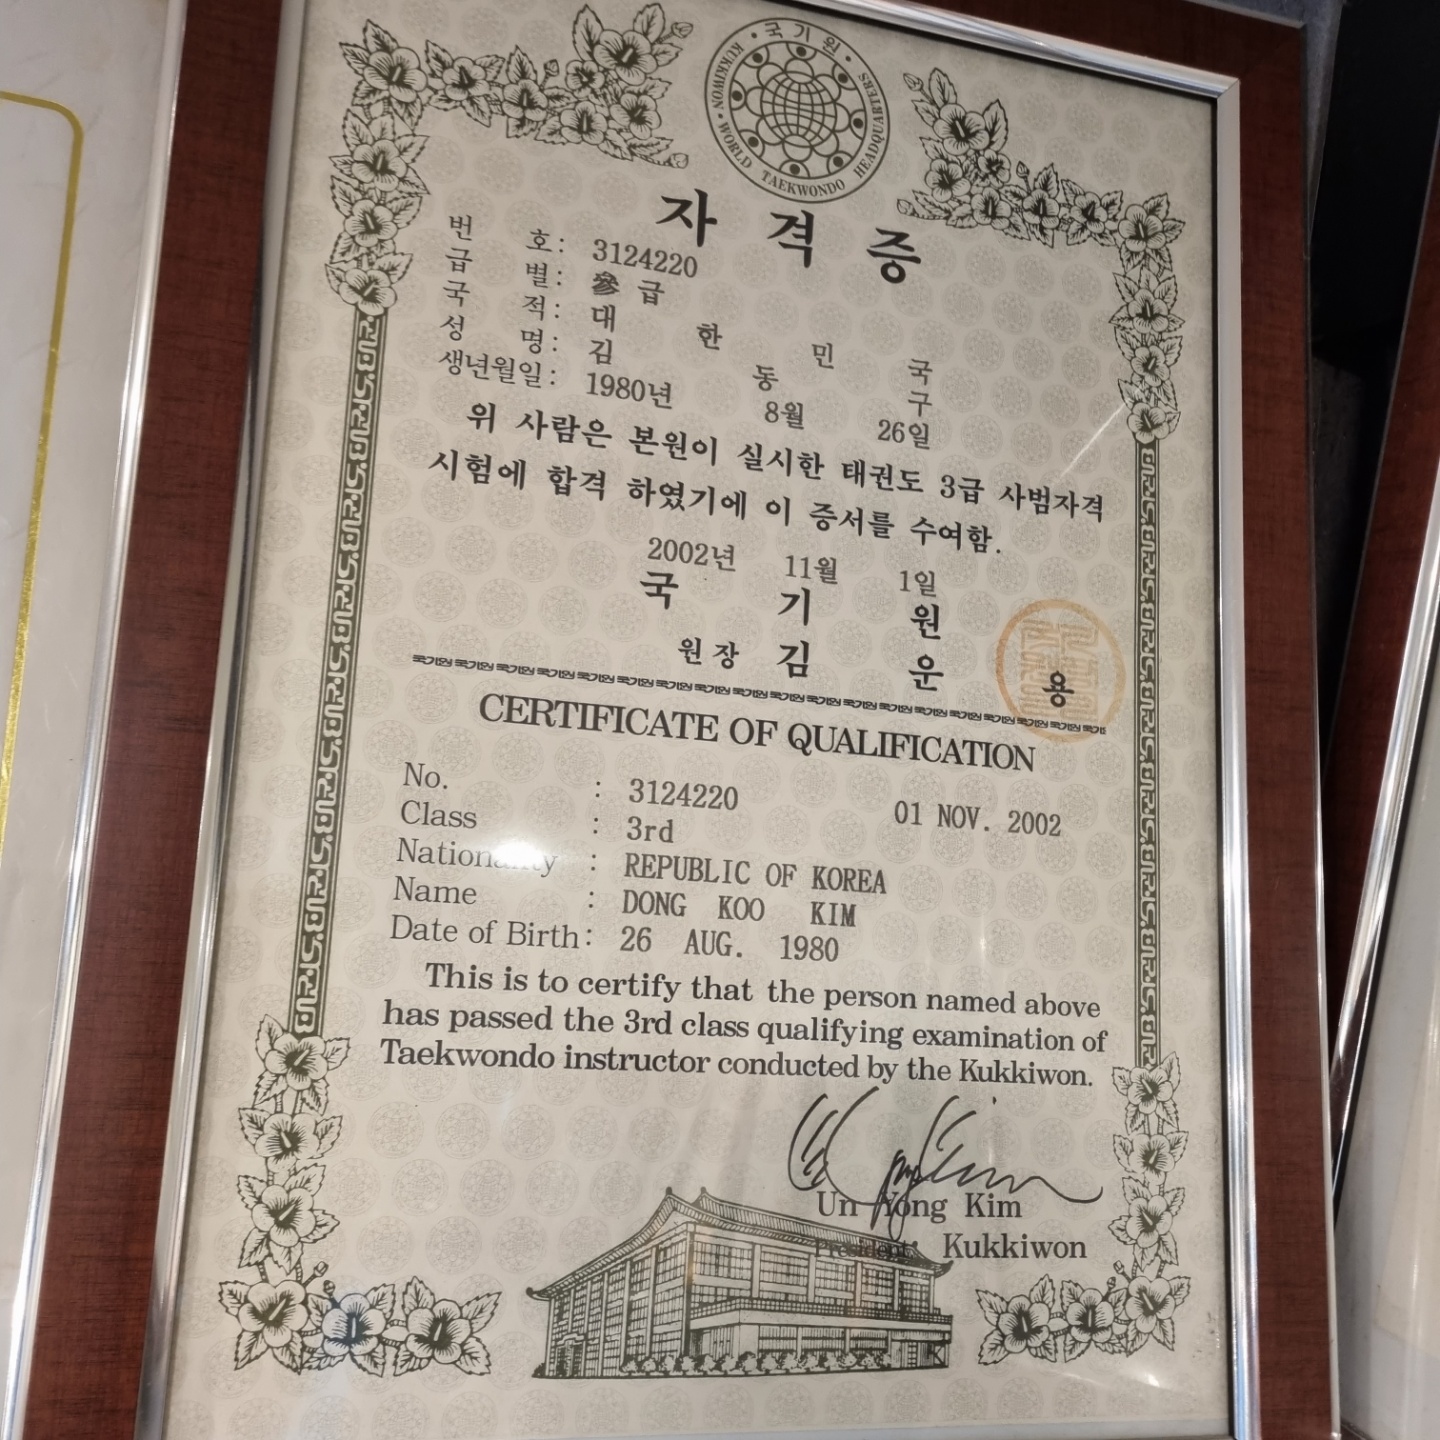 국기원
KUKKIWON • WORLD TAEKWONDO HEADQUARTERS
자격증
번호: 3124220
급별: 參급
국적: 대한민국
성명: 김동구
생년월일: 1980년 8월 26일
위 사람은 본원이 실시한 태권도 3급 사범자격
시험에 합격 하였기에 이 증서를 수여함.
2002년 11월 1일
국기원
원장 김운용
CERTIFICATE OF QUALIFICATION
No. : 3124220 01 NOV. 2002
Class : 3rd
Nationality : REPUBLIC OF KOREA
Name : DONG KOO KIM
Date of Birth: 26 AUG. 1980
This is to certify that the person named above
has passed the 3rd class qualifying examination of
Taekwondo instructor conducted by the Kukkiwon.
Un Yong Kim
President: Kukkiwon